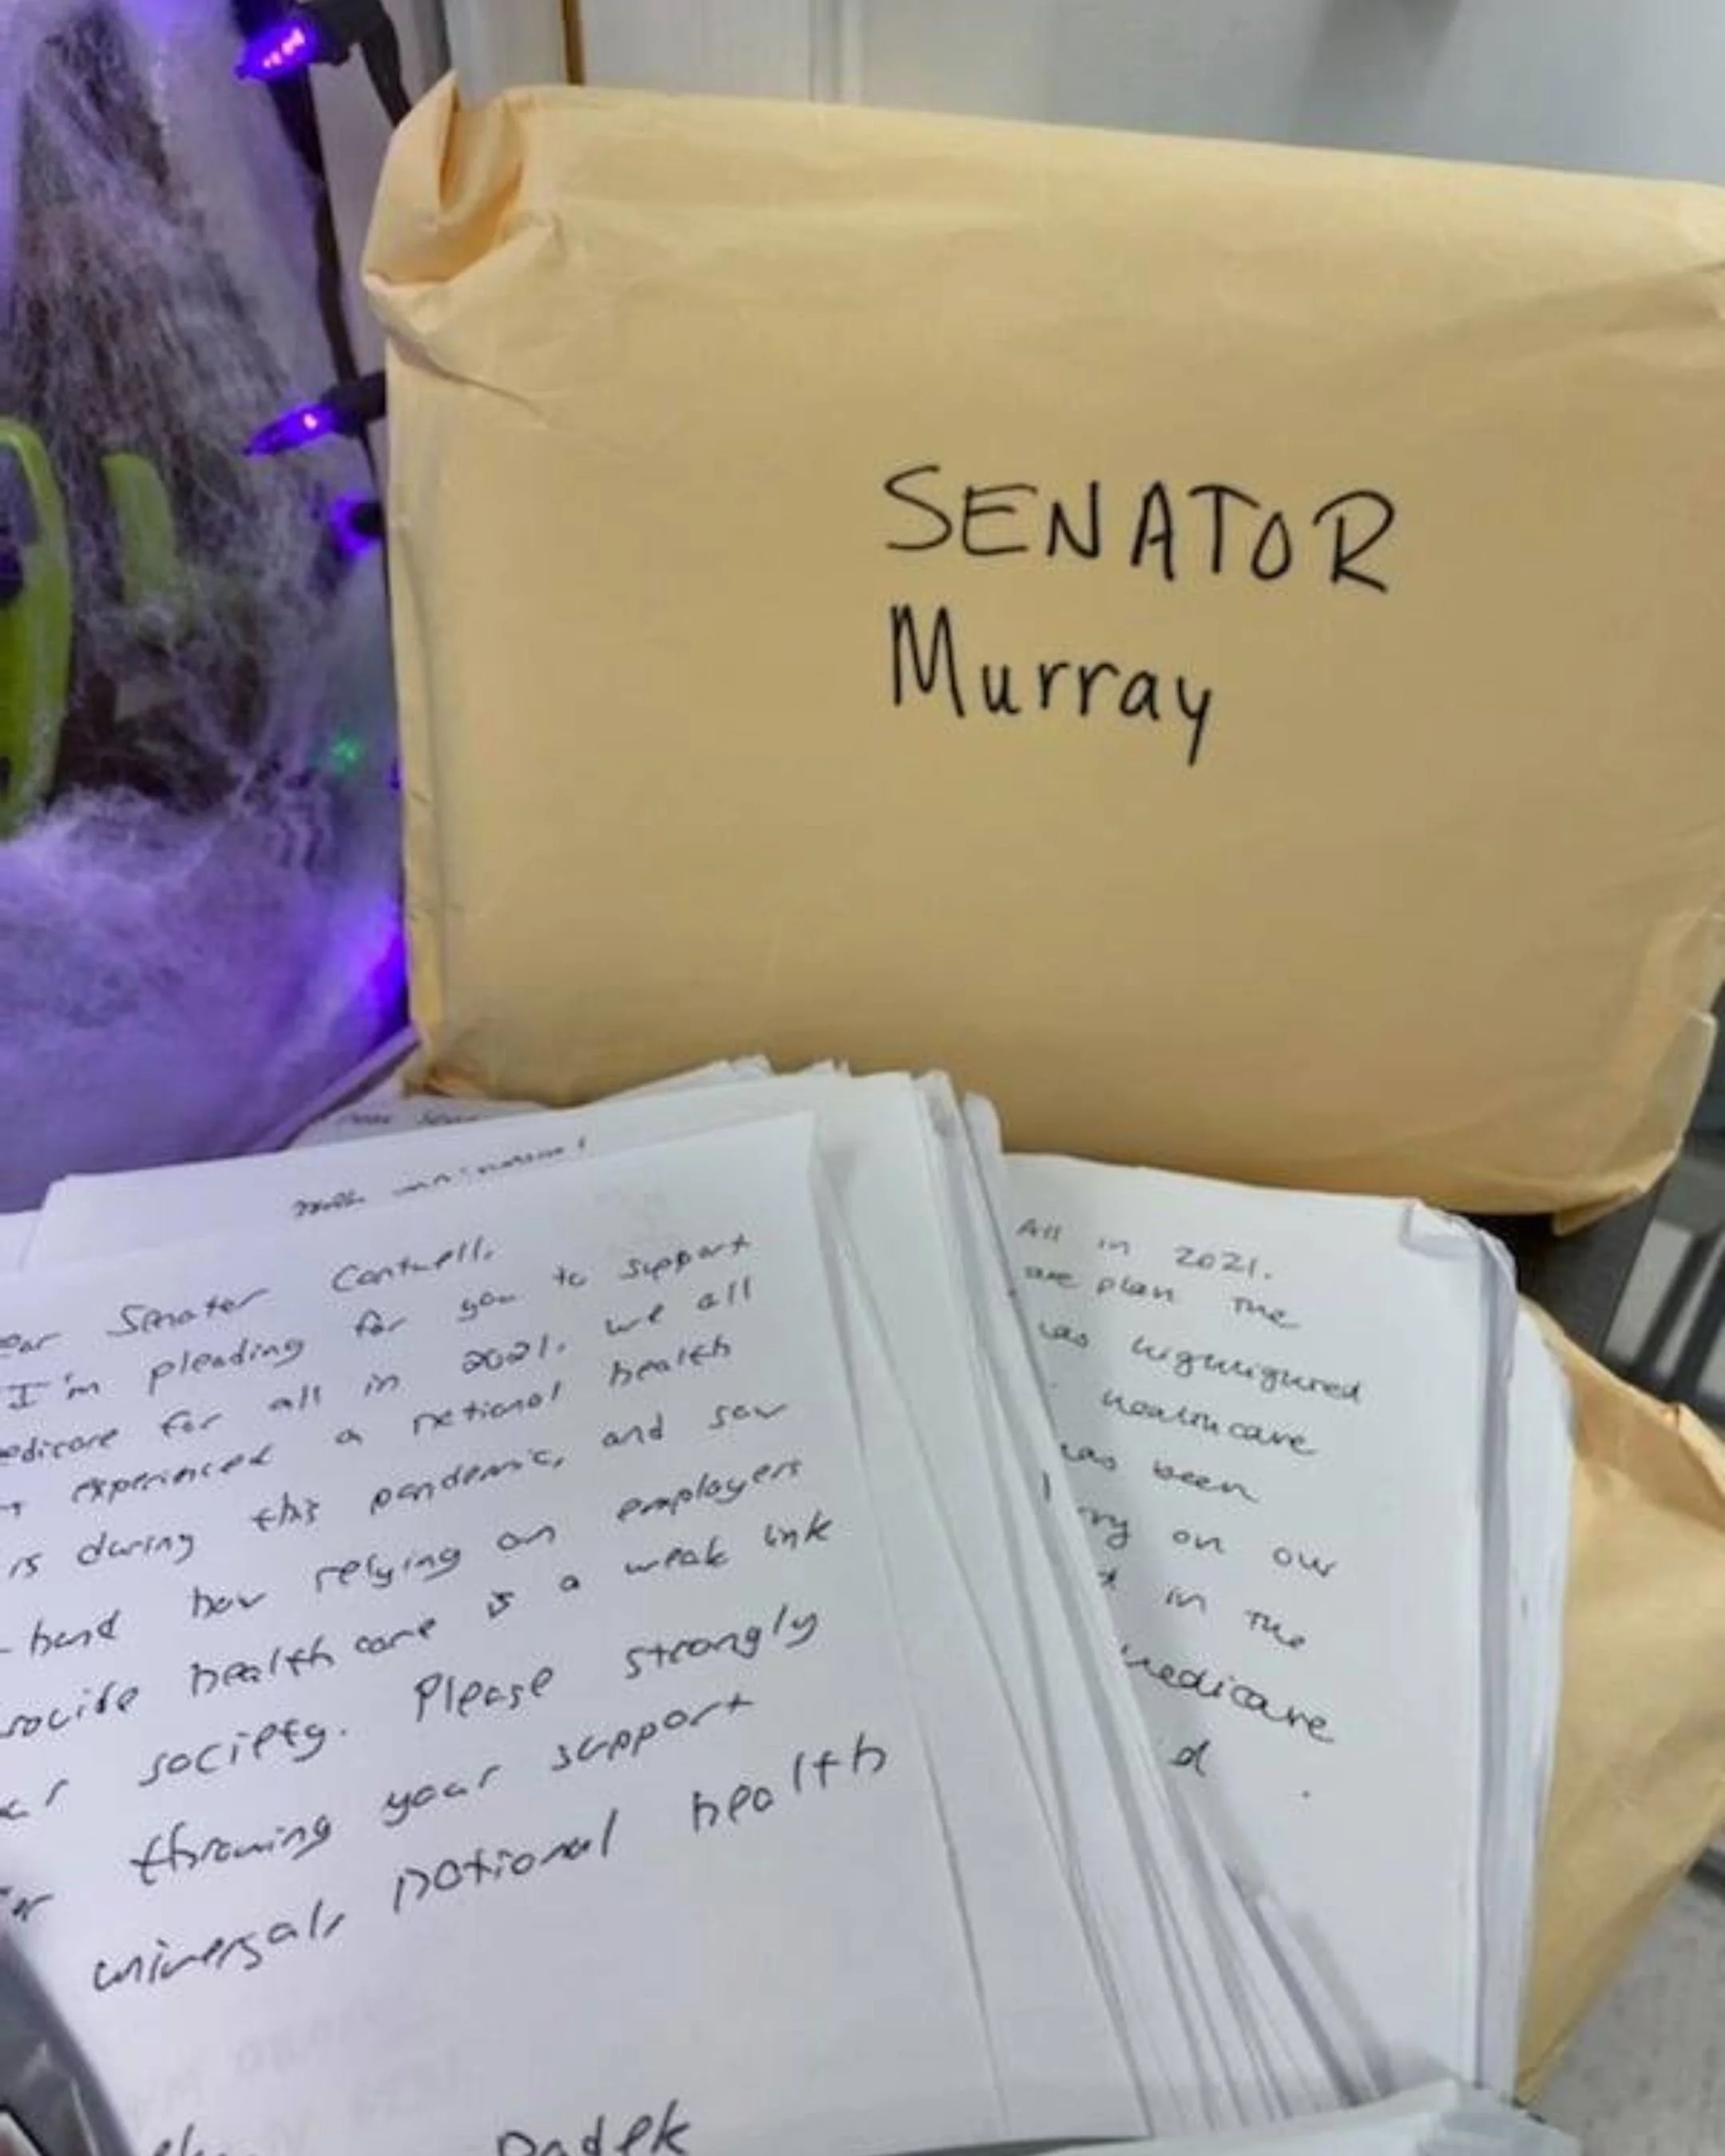 SENATOR
Murray
Senator Cantwell,
I'm pleading for you to support
for all in 2021. We all
experienced a national health
is during this pandemic, and saw
hand how relying on employers
health care is a weak link
society. Please strongly
throwing your support
universal, national health
Dadek
All in 2021.
plan the
was highlighted
healthcare
was been
on our
in the
medicare
d